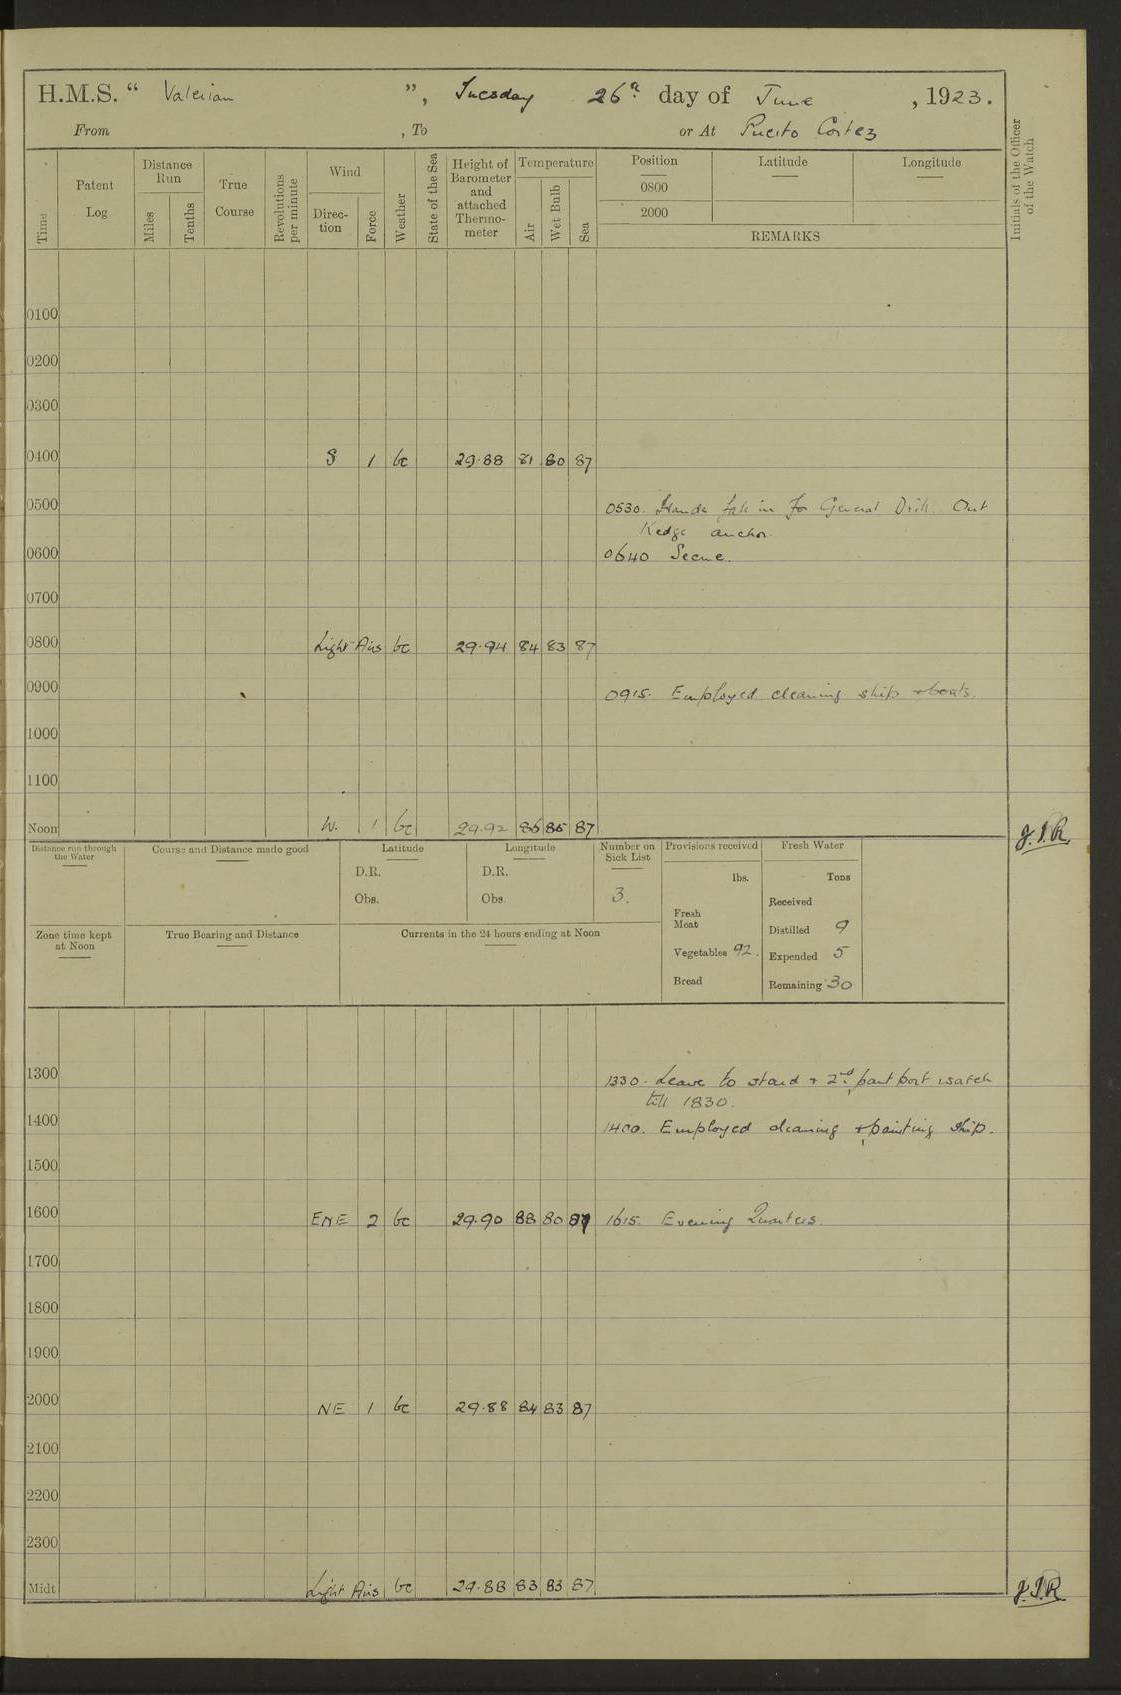 H.M.S. “ Valerian ”, Tuesday 26th day of June , 1923.
From , To or At Puerto Cortez
Time
Patent Log
Distance Run
Miles
Tenths
True Course
Revolutions per minute
Wind
Direc- tion
Force
Weather
State of the Sea
Height of Barometer and attached Thermo- meter
Temperature
Air
Wet Bulb
Sea
Position
0800
2000
Latitude
Longitude
REMARKS
Initials of the Officer of the Watch
0100
0200
0300
0400 S 1 bc 29.88 81 80 87
0500 0530. Hands fall in for General Drill. Out
Kedge anchor.
0600 0640 Secure.
0700
0800 Light Airs bc 29.94 84 83 87
0900 0915. Employed cleaning ship + boats.
1000
1100
Noon W. 1 bc 29.92 86 85 87 J.I.R.
Distance run through the Water
Course and Distance made good
Latitude
D.R.
Obs.
Longitude
D.R.
Obs.
Number on Sick List
3.
Provisions received
lbs.
Fresh Meat
Vegetables 92.
Bread
Fresh Water
Tons
Received
Distilled 9
Expended 5
Remaining 30
Zone time kept at Noon
True Bearing and Distance
Currents in the 24 hours ending at Noon
1300 1330. Leave to stand + 2nd part port watch
till 1830.
1400 1400. Employed cleaning + painting ship.
1500
1600 ENE 2 bc 29.90 88 80 87 1615. Evening Quarters.
1700
1800
1900
2000 NE 1 bc 29.88 84 83 87
2100
2200
2300
Midt Light Airs bc 29.88 83 83 87 J.I.R.